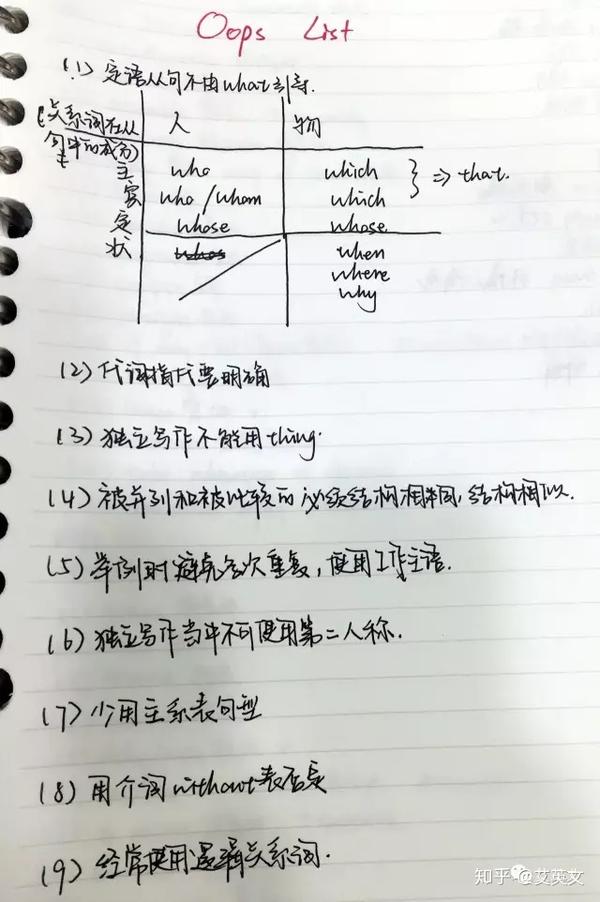 Oops List
(1) 定语从句不由what引导.
(关系词在从 人 物
句中的成分)
主 who which
宾 who/whom which } ⇒ that.
定 whose whose
状 when
where
why
(2) 代词指代要明确
(3) 独立写作不能用thing.
(4) 被并列和被比较的必须结构相同, 结构相似.
(5) 举例时避免多次重复, 使用I作主语.
(6) 独立写作当中不可使用第二人称.
(7) 少用主系表句型
(8) 用介词without表否定
(9) 经常使用逻辑关系词.
知乎 @艾英文